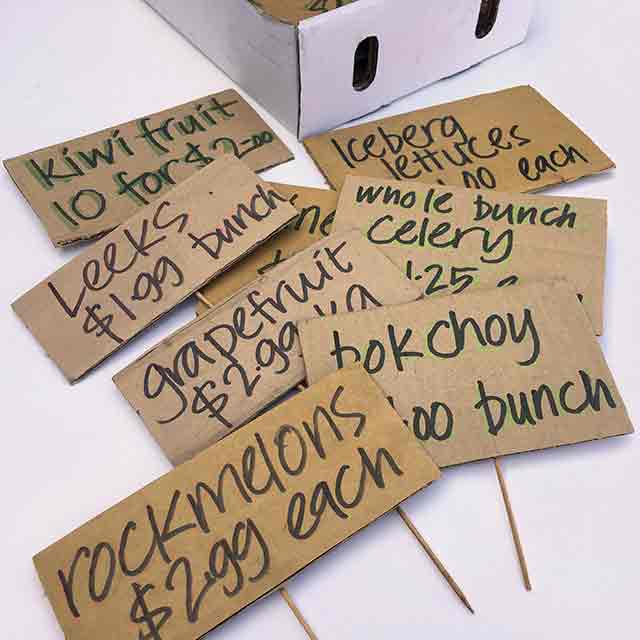 kiwi fruit
10 for $2.00
Iceberg
lettuces
.00 each
Leeks
$1.99 bunch
whole bunch
celery
1.25
grapefruit
$2.99 kg
bok choy
.00 bunch
rockmelons
$2.99 each